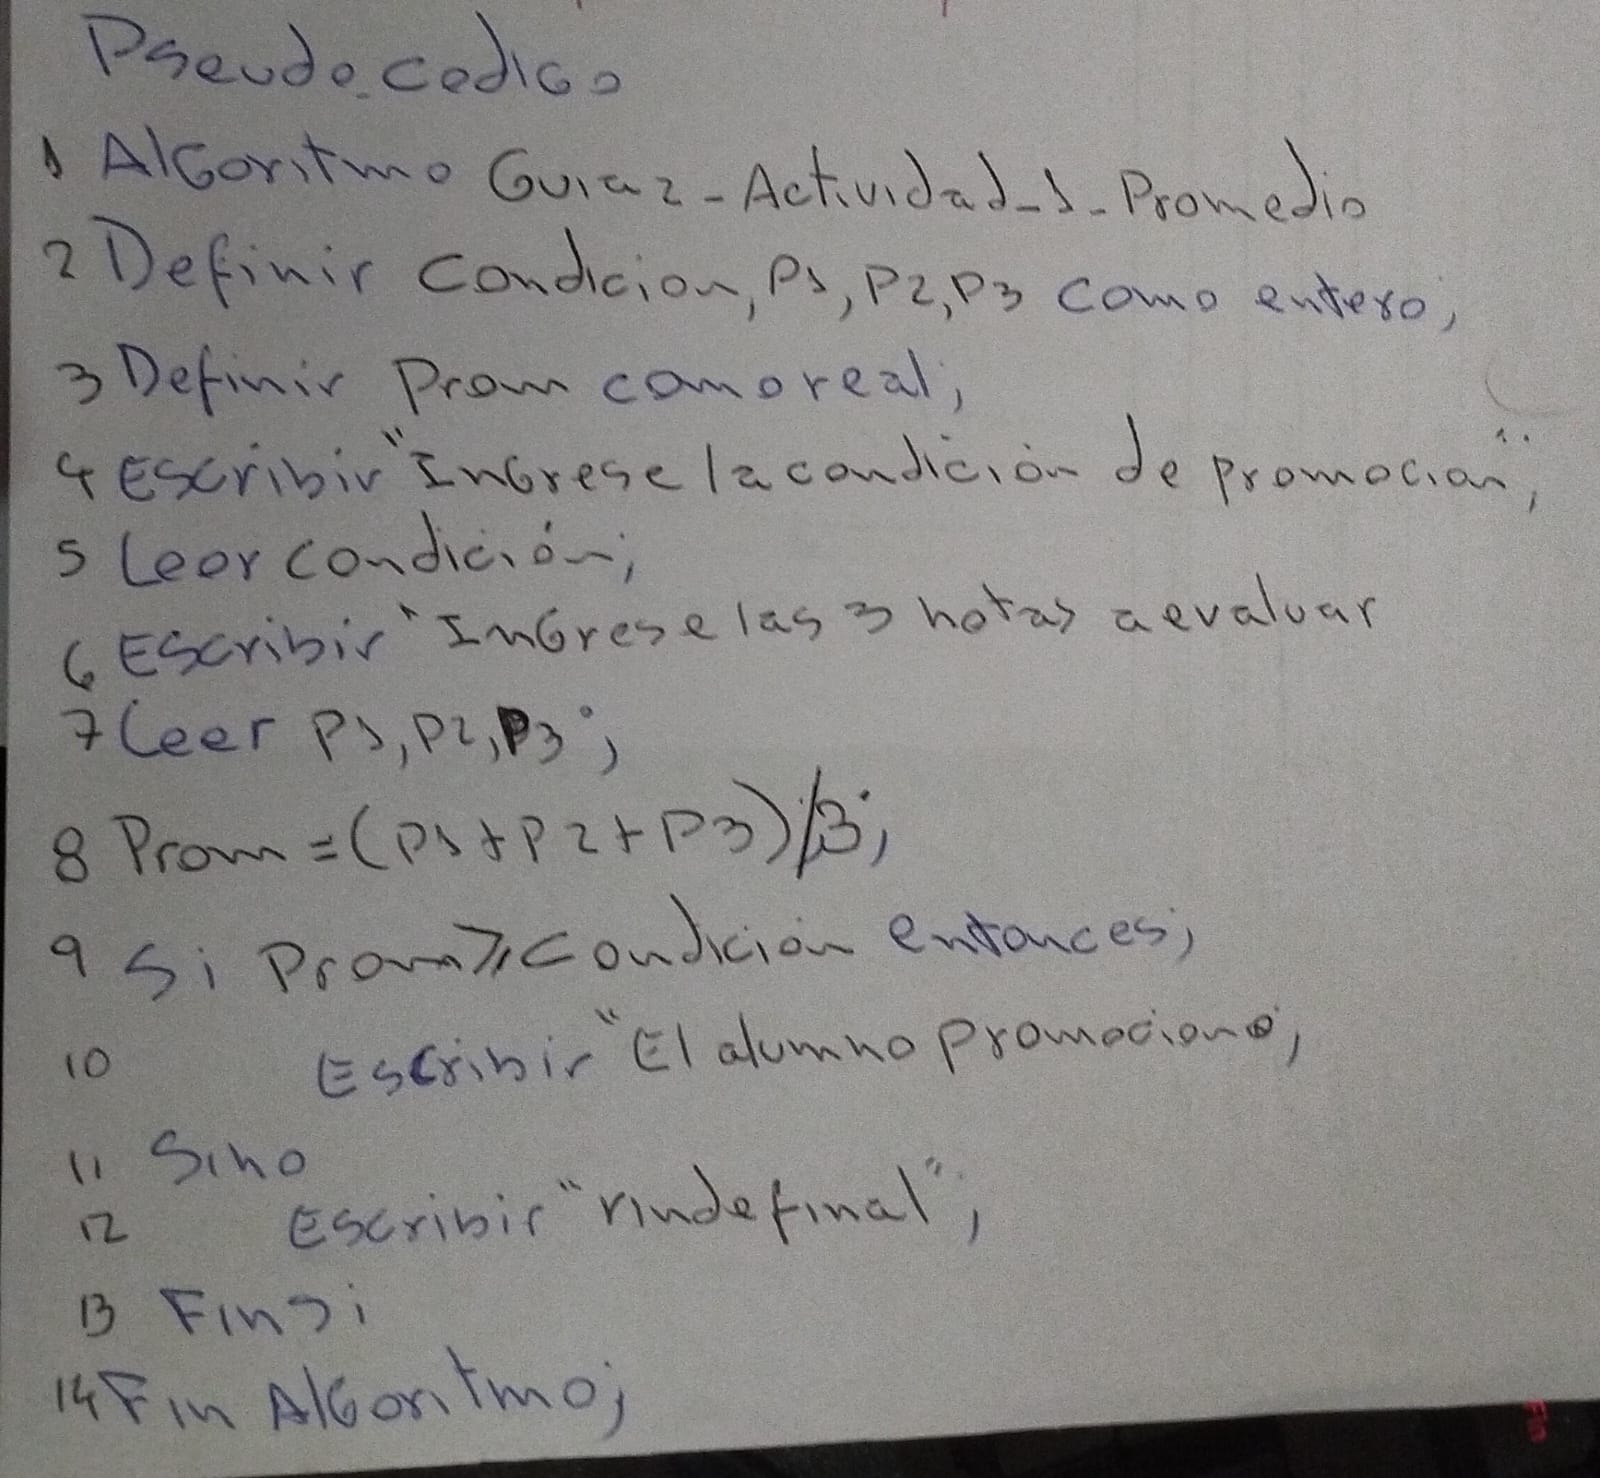 Pseudo_codigo
1 Algoritmo Guia2-Actividad_1-Promedio
2 Definir condicion, P1, P2, P3 como entero;
3 Definir Prom como real;
4 Escribir "Ingrese la condición de promocion";
5 Leer condición;
6 Escribir "Ingrese las 3 notas a evaluar
7 Leer P1, P2, P3;
8 Prom = (P1 + P2 + P3)/3;
9 Si Prom ≥ condición entonces;
10 Escribir "El alumno promociono;
11 Sino
12 Escribir "rinde final";
13 Finsi
14 Fin Algoritmo;
Fin